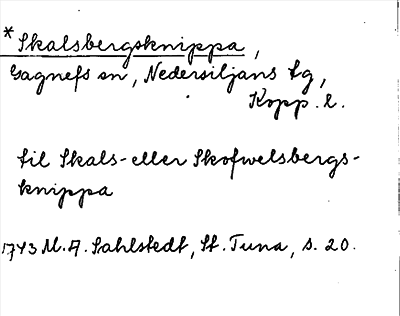 *Skalsbergsknippa,
Gagnefs sn, Nedersiljans tg,
Kopp. l.
til Skals- eller Skofwelsbergs-
knippa
1743 M.A. Sahlstedt, St. Tuna, s. 20.